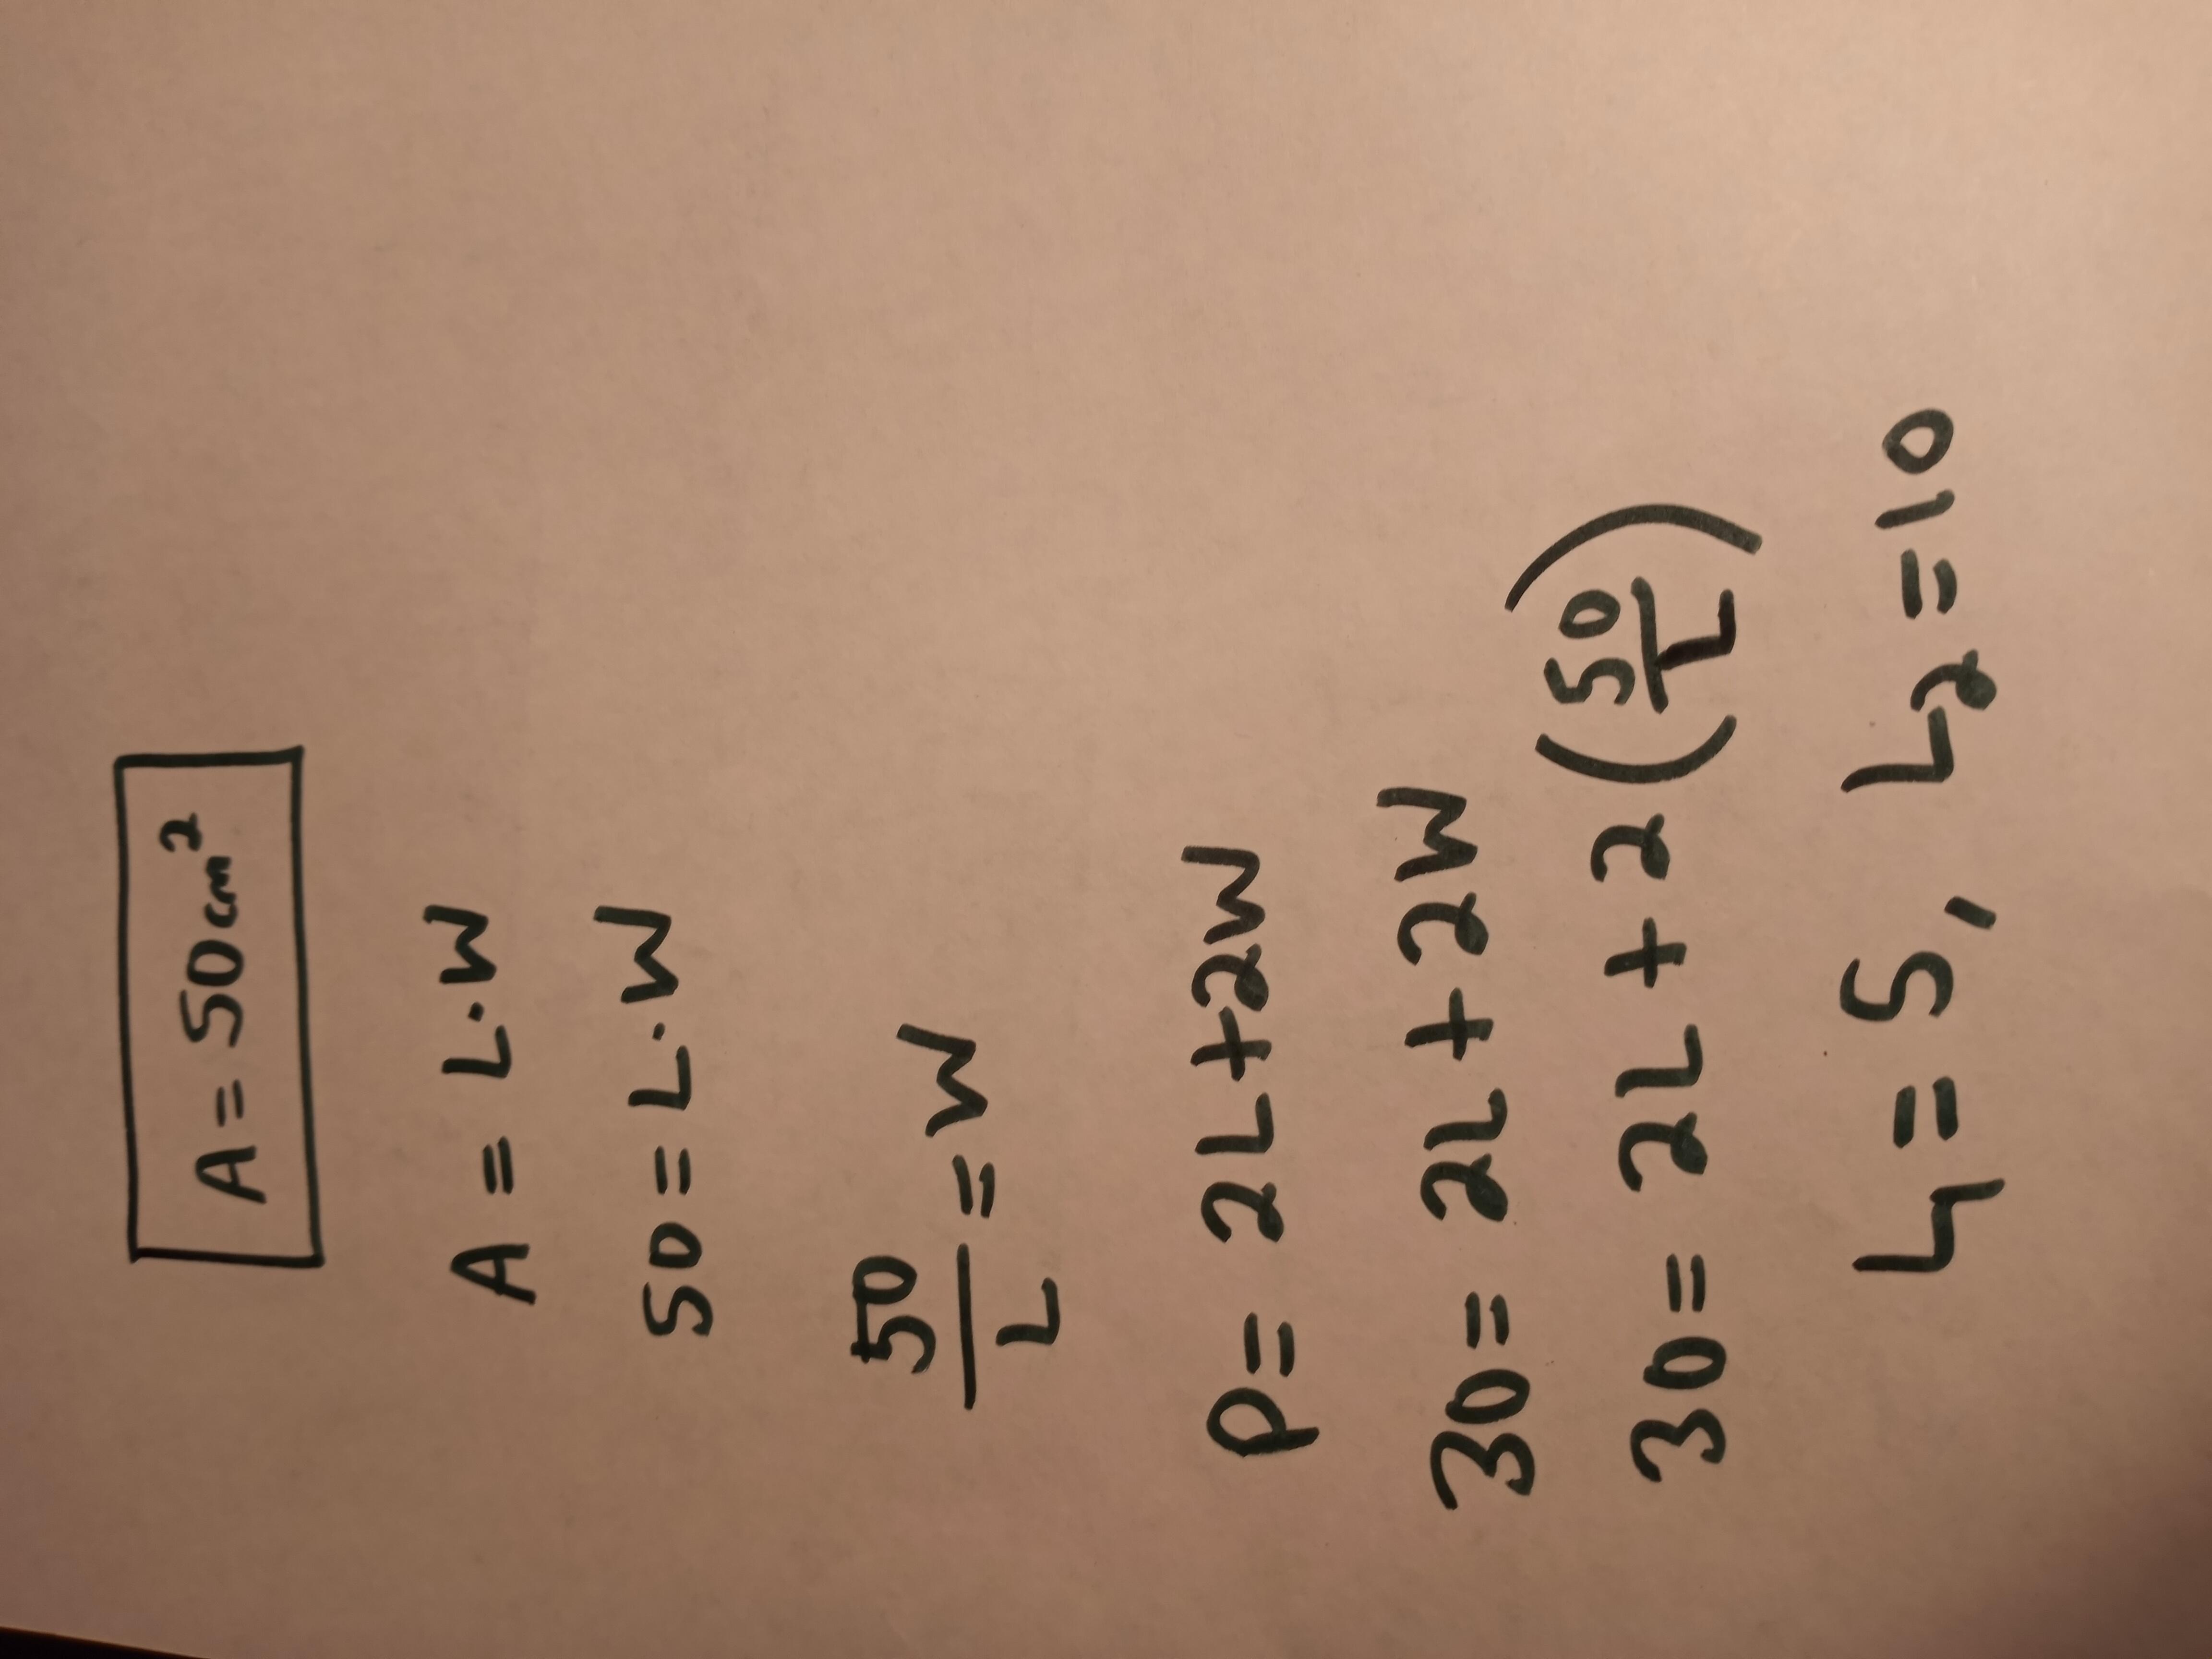 A = 50cm²
A = L·W
50 = L·W
50/L = W
P = 2L+2W
30 = 2L + 2W
30 = 2L + 2(50/L)
L₁ = 5, L₂ = 10